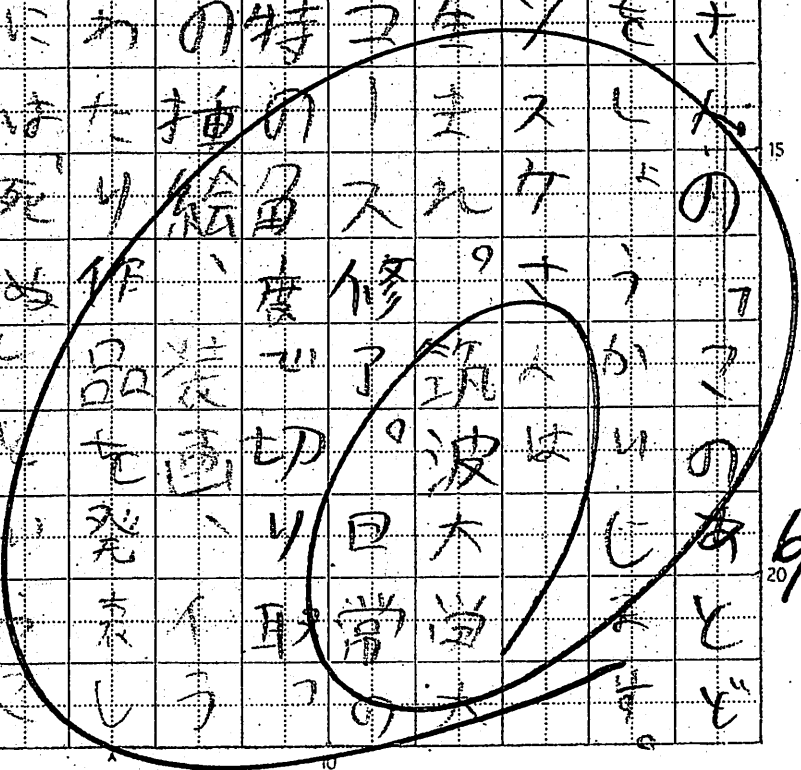 さかの「このあとど
をしどうかいじます。
ンスケさんは
生まれ。筑波大学大
コース修了。日常の
特の角度で切り取っ
の挿絵、装画、イラ
わたり作品を発表し
には、死ぬ
15
20
10